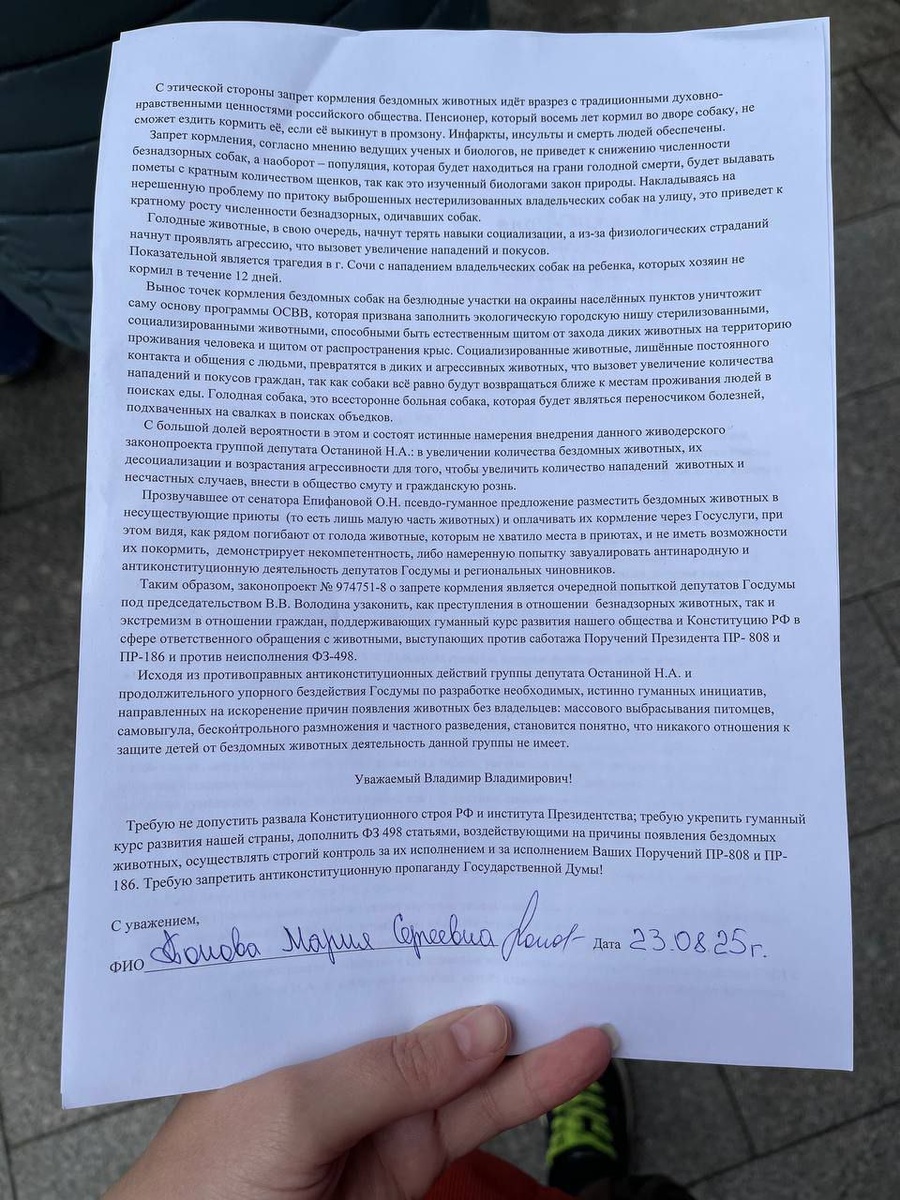 С этической стороны запрет кормления бездомных животных идёт вразрез с традиционными духовно-
нравственными ценностями российского общества. Пенсионер, который восемь лет кормил во дворе собаку, не
сможет ездить кормить её, если её выкинут в промзону. Инфаркты, инсульты и смерть людей обеспечены.
Запрет кормления, согласно мнению ведущих ученых и биологов, не приведет к снижению численности
безнадзорных собак, а наоборот – популяция, которая будет находиться на грани голодной смерти, будет выдавать
пометы с кратным количеством щенков, так как это изученный биологами закон природы. Накладываясь на
нерешенную проблему по притоку выброшенных нестерилизованных владельческих собак на улицу, это приведет к
кратному росту численности безнадзорных, одичавших собак.
Голодные животные, в свою очередь, начнут терять навыки социализации, а из-за физиологических страданий
начнут проявлять агрессию, что вызовет увеличение нападений и покусов.
Показательной является трагедия в г. Сочи с нападением владельческих собак на ребенка, которых хозяин не
кормил в течение 12 дней.
Вынос точек кормления бездомных собак на безлюдные участки на окраины населённых пунктов уничтожит
саму основу программы ОСВВ, которая призвана заполнить экологическую городскую нишу стерилизованными,
социализированными животными, способными быть естественным щитом от захода диких животных на территорию
проживания человека и щитом от распространения крыс. Социализированные животные, лишённые постоянного
контакта и общения с людьми, превратятся в диких и агрессивных животных, что вызовет увеличение количества
нападений и покусов граждан, так как собаки всё равно будут возвращаться ближе к местам проживания людей в
поисках еды. Голодная собака, это всесторонне больная собака, которая будет являться переносчиком болезней,
подхваченных на свалках в поисках объедков.
С большой долей вероятности в этом и состоят истинные намерения внедрения данного живодерского
законопроекта группой депутата Останиной Н.А.: в увеличении количества бездомных животных, их
десоциализации и возрастания агрессивности для того, чтобы увеличить количество нападений животных и
несчастных случаев, внести в общество смуту и гражданскую рознь.
Прозвучавшее от сенатора Епифановой О.Н. псевдо-гуманное предложение разместить бездомных животных в
несуществующие приюты (то есть лишь малую часть животных) и оплачивать их кормление через Госуслуги, при
этом видя, как рядом погибают от голода животные, которым не хватило места в приютах, и не иметь возможности
их покормить, демонстрирует некомпетентность, либо намеренную попытку завуалировать антинародную и
антиконституционную деятельность депутатов Госдумы и региональных чиновников.
Таким образом, законопроект № 974751-8 о запрете кормления является очередной попыткой депутатов Госдумы
под председательством В.В. Володина узаконить, как преступления в отношении безнадзорных животных, так и
экстремизм в отношении граждан, поддерживающих гуманный курс развития нашего общества и Конституцию РФ в
сфере ответственного обращения с животными, выступающих против саботажа Поручений Президента ПР- 808 и
ПР-186 и против неисполнения ФЗ-498.
Исходя из противоправных антиконституционных действий группы депутата Останиной Н.А. и
продолжительного упорного бездействия Госдумы по разработке необходимых, истинно гуманных инициатив,
направленных на искоренение причин появления животных без владельцев: массового выбрасывания питомцев,
самовыгула, бесконтрольного размножения и частного разведения, становится понятно, что никакого отношения к
защите детей от бездомных животных деятельность данной группы не имеет.
Уважаемый Владимир Владимирович!
Требую не допустить развала Конституционного строя РФ и института Президентства; требую укрепить гуманный
курс развития нашей страны, дополнить ФЗ 498 статьями, воздействующими на причины появления бездомных
животных, осуществлять строгий контроль за их исполнением и за исполнением Ваших Поручений ПР-808 и ПР-
186. Требую запретить антиконституционную пропаганду Государственной Думы!
С уважением,
ФИО Мария Сергеевна Дата 23.08.25г.